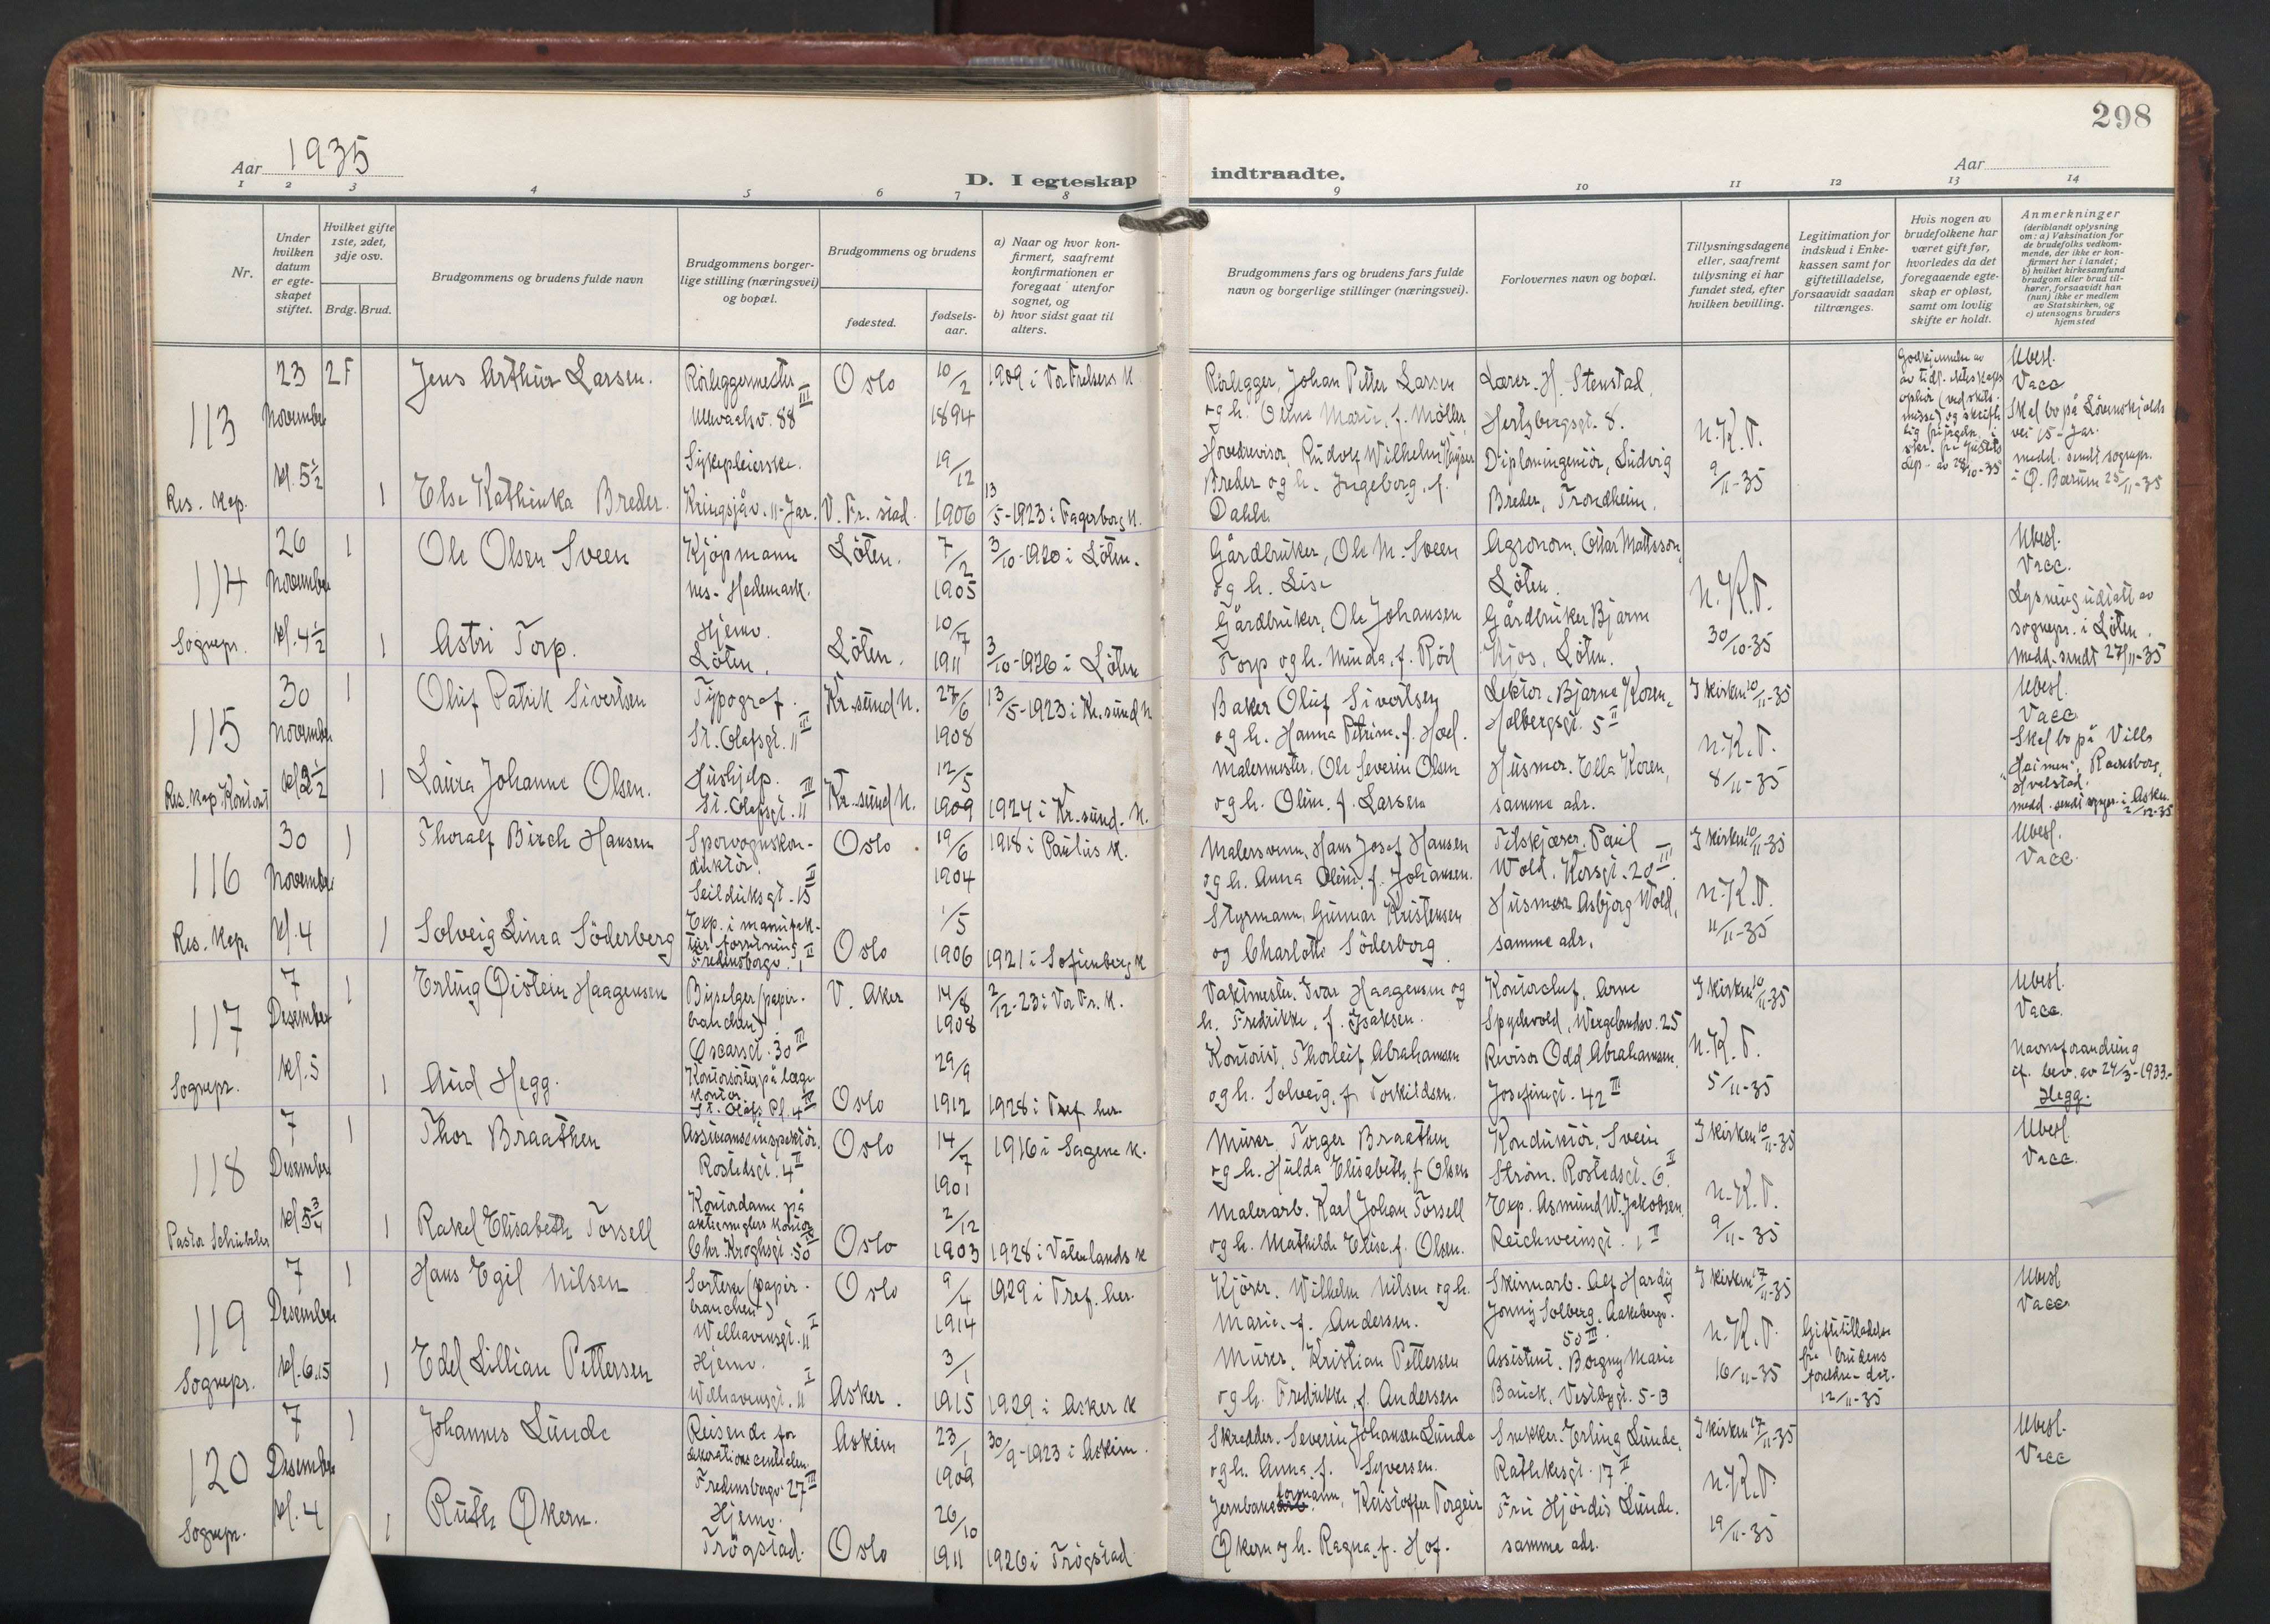 298
Aar 1935
D. I egteskap
indtraadte.
Aar
1 2 3 4 5 6 7 8 9 10 11 12 13 14
Nr.
Under hvilken datum er egteskapet stiftet.
Hvilket gifte 1ste, 2det, 3dje osv.
Brdg. Brud.
Brudgommens og brudens fulde navn
Brudgommens borgerlige stilling (næringsvei) og bopæl.
Brudgommens og brudens
fødested.
fødselsaar.
a) Naar og hvor konfirmert, saafremt konfirmationen er foregaat utenfor sognet, og
b) hvor sidst gaat til alters.
Brudgommens fars og brudens fars fulde navn og borgerlige stillinger (næringsvei).
Forlovernes navn og bopæl.
Tillysningsdagene eller, saafremt tillysning ei har fundet sted, efter hvilken bevilling.
Legitimation for indskud i Enkekassen samt for giftetilladelse, forsaavidt saadan tiltrænges.
Hvis nogen av brudefolkene har været gift før, hvorledes da det foregaaende egteskap er opløst, samt om lovlig skifte er holdt.
Anmerkninger
(deriblandt oplysning om: a) Vaksination for de brudefolks vedkommende, der ikke er konfirmert her i landet;
b) hvilket kirkesamfund brudgom eller brud tilhører, forsaavidt han (hun) ikke er medlem av Statskirken, og
c) utensogns bruders hjemsted
113
Res. Kap.
23 November kl. 5½
2F
Jens Arthur Larsen.
Rørleggermester
Ullevaalsv. 88 III
Oslo
10/2 1894
1909 i Vor Frelsers K.
Rørlegger, Johan Petter Larsen
og h. Oline Marie, f. Møller,
Lærer. H. Stenstad,
Hertzbergsgt. 8.
N.K.T.
9/11-35
Ubesl.
Vacc
Skal bo på Løvenskjolds
vei 15 - Jar.
medd. sendt sognepr.
i Ø. Bærum 25/11-35
1
Else Kathinka Breder.
Sykepleierske.
Kringsjåv. 11 - Jar.
V. Fr. stad.
19/12 1906
13/5-1923 i Fagerborg K.
Hovedrevisor, Rudolf Wilhelm Kayser
Breder og h. Ingeborg, f.
Dahle
Diplomingeniør, Ludvig
Breder, Trondheim.
114
Sognepr.
26 November kl. 4½
1
Ole Olsen Sveen
Kjøpmann
Nes - Hedemark.
Løten.
7/2 1905
3/10-1920 i Løten.
Gårdbruker, Ole M. Sveen
og h. Lise
Agronom, Ottar Mattsson,
Løten.
N.K.T.
30/10-35
Ubesl.
Vacc.
Lysning utført av
sognepr. i Løten.
Medd. sendt 27/11-35
1
Astri Torp.
Hjemv.
Løten.
Løten.
10/7 1911
3/10-1926 i Løten
Gårdbruker, Ole Johansen
Torp og h. Minda, f. Röd
Gårdbruker Bjarne
Kjos, Løten.
115
Res. Kap. Kontoret
30 November kl. 2½
1
Oluf Patrik Sivertsen
Typograf.
St. Olafsgt. 11 III
Kr.sund N.
27/6 1908
13/5-1923 i Kr.sund N
Baker Oluf Sivertsen
og h. Hanna Petrine, f. Hoel.
Lektor, Bjarne Koren,
Holbergsgt. 5 II
I kirken 10/11-35
N.K.T.
8/11-35
Ubesl.
Vacc.
Skal bo på Villa
"Heimen", Roensborg,
Hvalstad.
medd. sendt sognepr. i Asker
2/12-35
1
Laura Johanne Olsen.
Hushjelp.
St. Olafsgt. 11 III
Kr.sund N.
12/5 1909
1924 i Kr.sund. N.
Malermester, Ole Severin Olsen
og h. Oline, f. Larsen
Husmor. Ella Koren,
samme adr.
116
Res. Kap.
30 November kl. 4
1
Thoralf Birch Hansen
Sporvognskonduktør.
Seilduksgt. 15 II
Oslo
19/6 1904
1918 i Paulus K.
Malersvenn, Hans Josef Hansen
og h. Anna Oline, f. Johansen.
Tilskjærer, Paul
Wold, Korsgt. 20 III
I kirken 10/11-35
N.K.T.
11/11-35
Ubesl.
Vacc.
1
Solveig Linea Söderberg
Exp. i manufaktur forretning
Fredensborgv. 1 II
Oslo
1/5 1906
1921 i Sofienberg K
Styrmann, Gunnar Kristensen
og Charlotte Söderborg.
Husmor Asbjørg Wold,
samme adr.
117
Sognepr.
7 Desember kl. 5
1
Erling Øistein Haagensen
Byselger (papirbranchen)
Oscarsgt. 30 III
V. Aker
14/8 1908
2/12-23 i Vor Fr. K.
Vaktmester, Ivar Haagensen og
h. Fredrikke, f. Isaksen.
Kontorchef, Arne
Spydevold, Wergelandsv. 25
I kirken 10/11-35
N.K.T.
5/11-35
Ubesl.
Vacc.
Navneforandring
if. bev. av 24/3-1933.
Hegg.
1
Aud Hegg.
Kontorsøster på læge
kontor.
St. Olafs Pl. 4 III
Oslo
29/9 1912
1928 i Tref. her.
Kontorist, Thorleif Abrahamsen
og h. Solveig, f. Torkildsen.
Revisor Odd Abrahamsen,
Josefinegt. 42 III
118
Pastor Schübeler
7 Desember kl. 5¾
1
Thor Braathen
Assuranseinspektør.
Rostedsgt. 4 II
Oslo
14/7 1901
1916 i Sagene K.
Murer, Torger Braathen
og h. Hulda Elisabeth, f Olsen
Konduktør, Svein
Strøm. Rostedsgt. 6. II
I kirken 10/11-35
N.K.T.
9/11-35
Ubesl.
Vacc.
1
Rakel Elisabeth Torsell
Kontordame på
aktiemeglers kontor
Chr. Kroghsgt. 50
Oslo
2/12 1903
1928 i Vaterlands K
Malerarb. Karl Johan Torsell
og h. Mathilde Elise, f. Olsen.
Exp. Asmund W. Jakobsen,
Reichweinsgt. 1 II
119
Sognepr.
7 Desember kl. 6.15
1
Hans Egil Nilsen
Sorterer (papirbranchen)
Welhavensgt. 11 I
Oslo
9/4 1914
1929 i Tref. her.
Kjører, Wilhelm Nilsen og h.
Marie, f. Andersen.
Skinnarb. Alf Hardy
Jonny Solberg, Aakebergv.
50 III.
I kirken 17/11-35
N.K.T.
16/11-35
Giftetilladelse
fra brudens
foreldre - dat.
12/11-35
Ubesl
Vacc.
1
Edel Lillian Pettersen
Hjemv.
Welhavensgt. 11 I
Asker.
3/1 1915
1929 i Asker K
Murer, Kristian Pettersen
og h. Fredrikke, f. Andersen
Assistent, Borgny Marie
Bauck, Vestbygt. 5-B
120
Sognepr.
7 Desember kl. 4
1
Johannes Lunde
Reisende for
dekorationscentralen.
Fredensborgv. 27 III
Askim
23/1 1909
30/9-1923 i Askim.
Skredder. Severin Johansen Lunde
og h. Anna, f. Syversen.
Snekker. Erling Lunde,
Rathkesgt. 17 II
I kirken 17/11-35
N.K.T.
19/11-35
Ubesl.
Vacc
1
Ruth Økern.
Hjemv.
Trøgstad.
Oslo
26/10 1911
1926 i Trøgstad
Jernbaneformann, Kristoffer Torgeir
Økern og h. Ragna, f. Hof.
Fru Hjørdis Lunde.
samme adr.